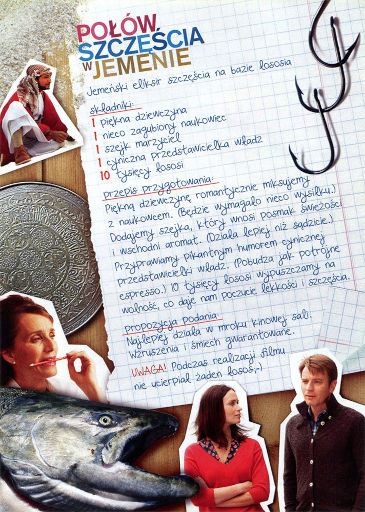 POŁÓW
SZCZĘŚCIA
W JEMENIE
Jemeński eliksir szczęścia na bazie łososia
składniki:
1 piękna dziewczyna
1 nieco zagubiony naukowiec
1 szejk marzyciel
1 cyniczna przedstawicielka władz
10 tysięcy łososi
przepis przygotowania:
Piękną dziewczynę romantycznie miksujemy
z naukowcem. (Będzie wymagało nieco wysiłku.)
Dodajemy szejka, który wnosi posmak świeżości
i wschodni aromat. (Działa lepiej niż sądzicie.)
Przyprawiamy pikantnym humorem cynicznej
przedstawicielki władz. (Pobudza jak potrójne
espresso.) 10 tysięcy łososi wypuszczamy na
wolność, co daje nam poczucie lekkości i szczęścia.
propozycja podania:
Najlepiej działa w mroku kinowej sali.
Wzruszenia i śmiech gwarantowane.
UWAGA! Podczas realizacji filmu
nie ucierpiał żaden łosoś;-)